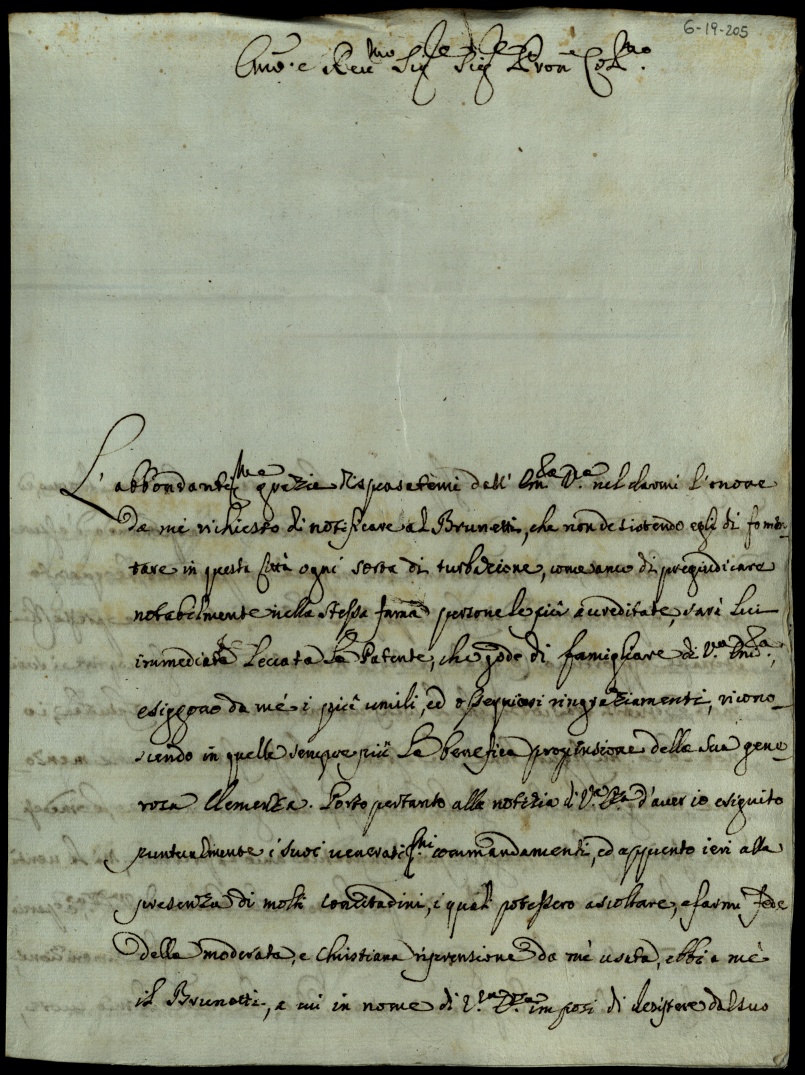 6-19-205
Emo. e Reumo Sigre Sigre Prone Colmo.
L'abbondantissme grazie dispensatemi dall' Emza Va. nel darmi l'onore
da me richiesto di notificare al Brunetti, che non desistendo egli di fomen-
tare in questa Città ogni sorta di turbazione, come anco di pregiudicare
notabilmente nella stessa fama persone le più accreditate, sarà lui
immediate Levata la Patente, che gode di famigliare di V.ra Emza,
esiggono da mè i più umili, ed ossequiosi ringraziamenti, ricono-
scendo in quelle sempre più la benefica propensione della sua gene-
rosa Clemenza. Porto pertanto alla notizia di V.ra Emza d'aver io eseguito
puntualmente i suoi veneratissmi commandamenti, ed appunto ieri alla
presenza di molti Concittadini, i quali potessero ascoltare, e farmi fede
della moderata, e Christiana riprensione da mè usata, ebbi a mè
il Brunetti, a cui in nome di V.ra Emza imposi di desistere dal suo